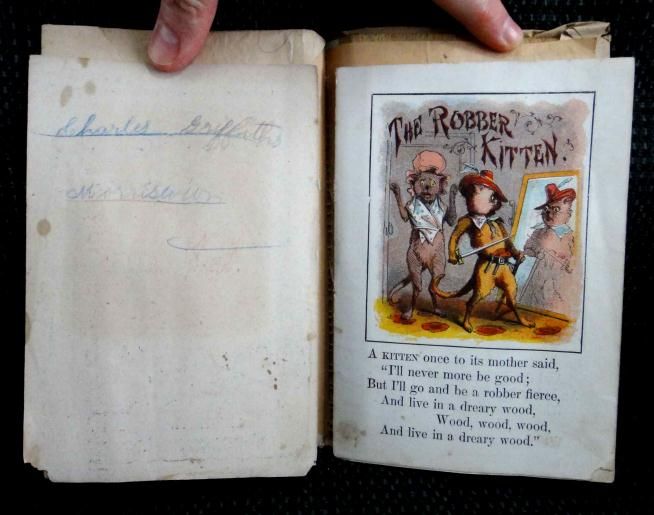 Charles Griffiths
Morriseton
THE ROBBER
KITTEN.
A KITTEN once to its mother said,
"I'll never more be good;
But I'll go and be a robber fierce,
And live in a dreary wood,
Wood, wood, wood,
And live in a dreary wood."